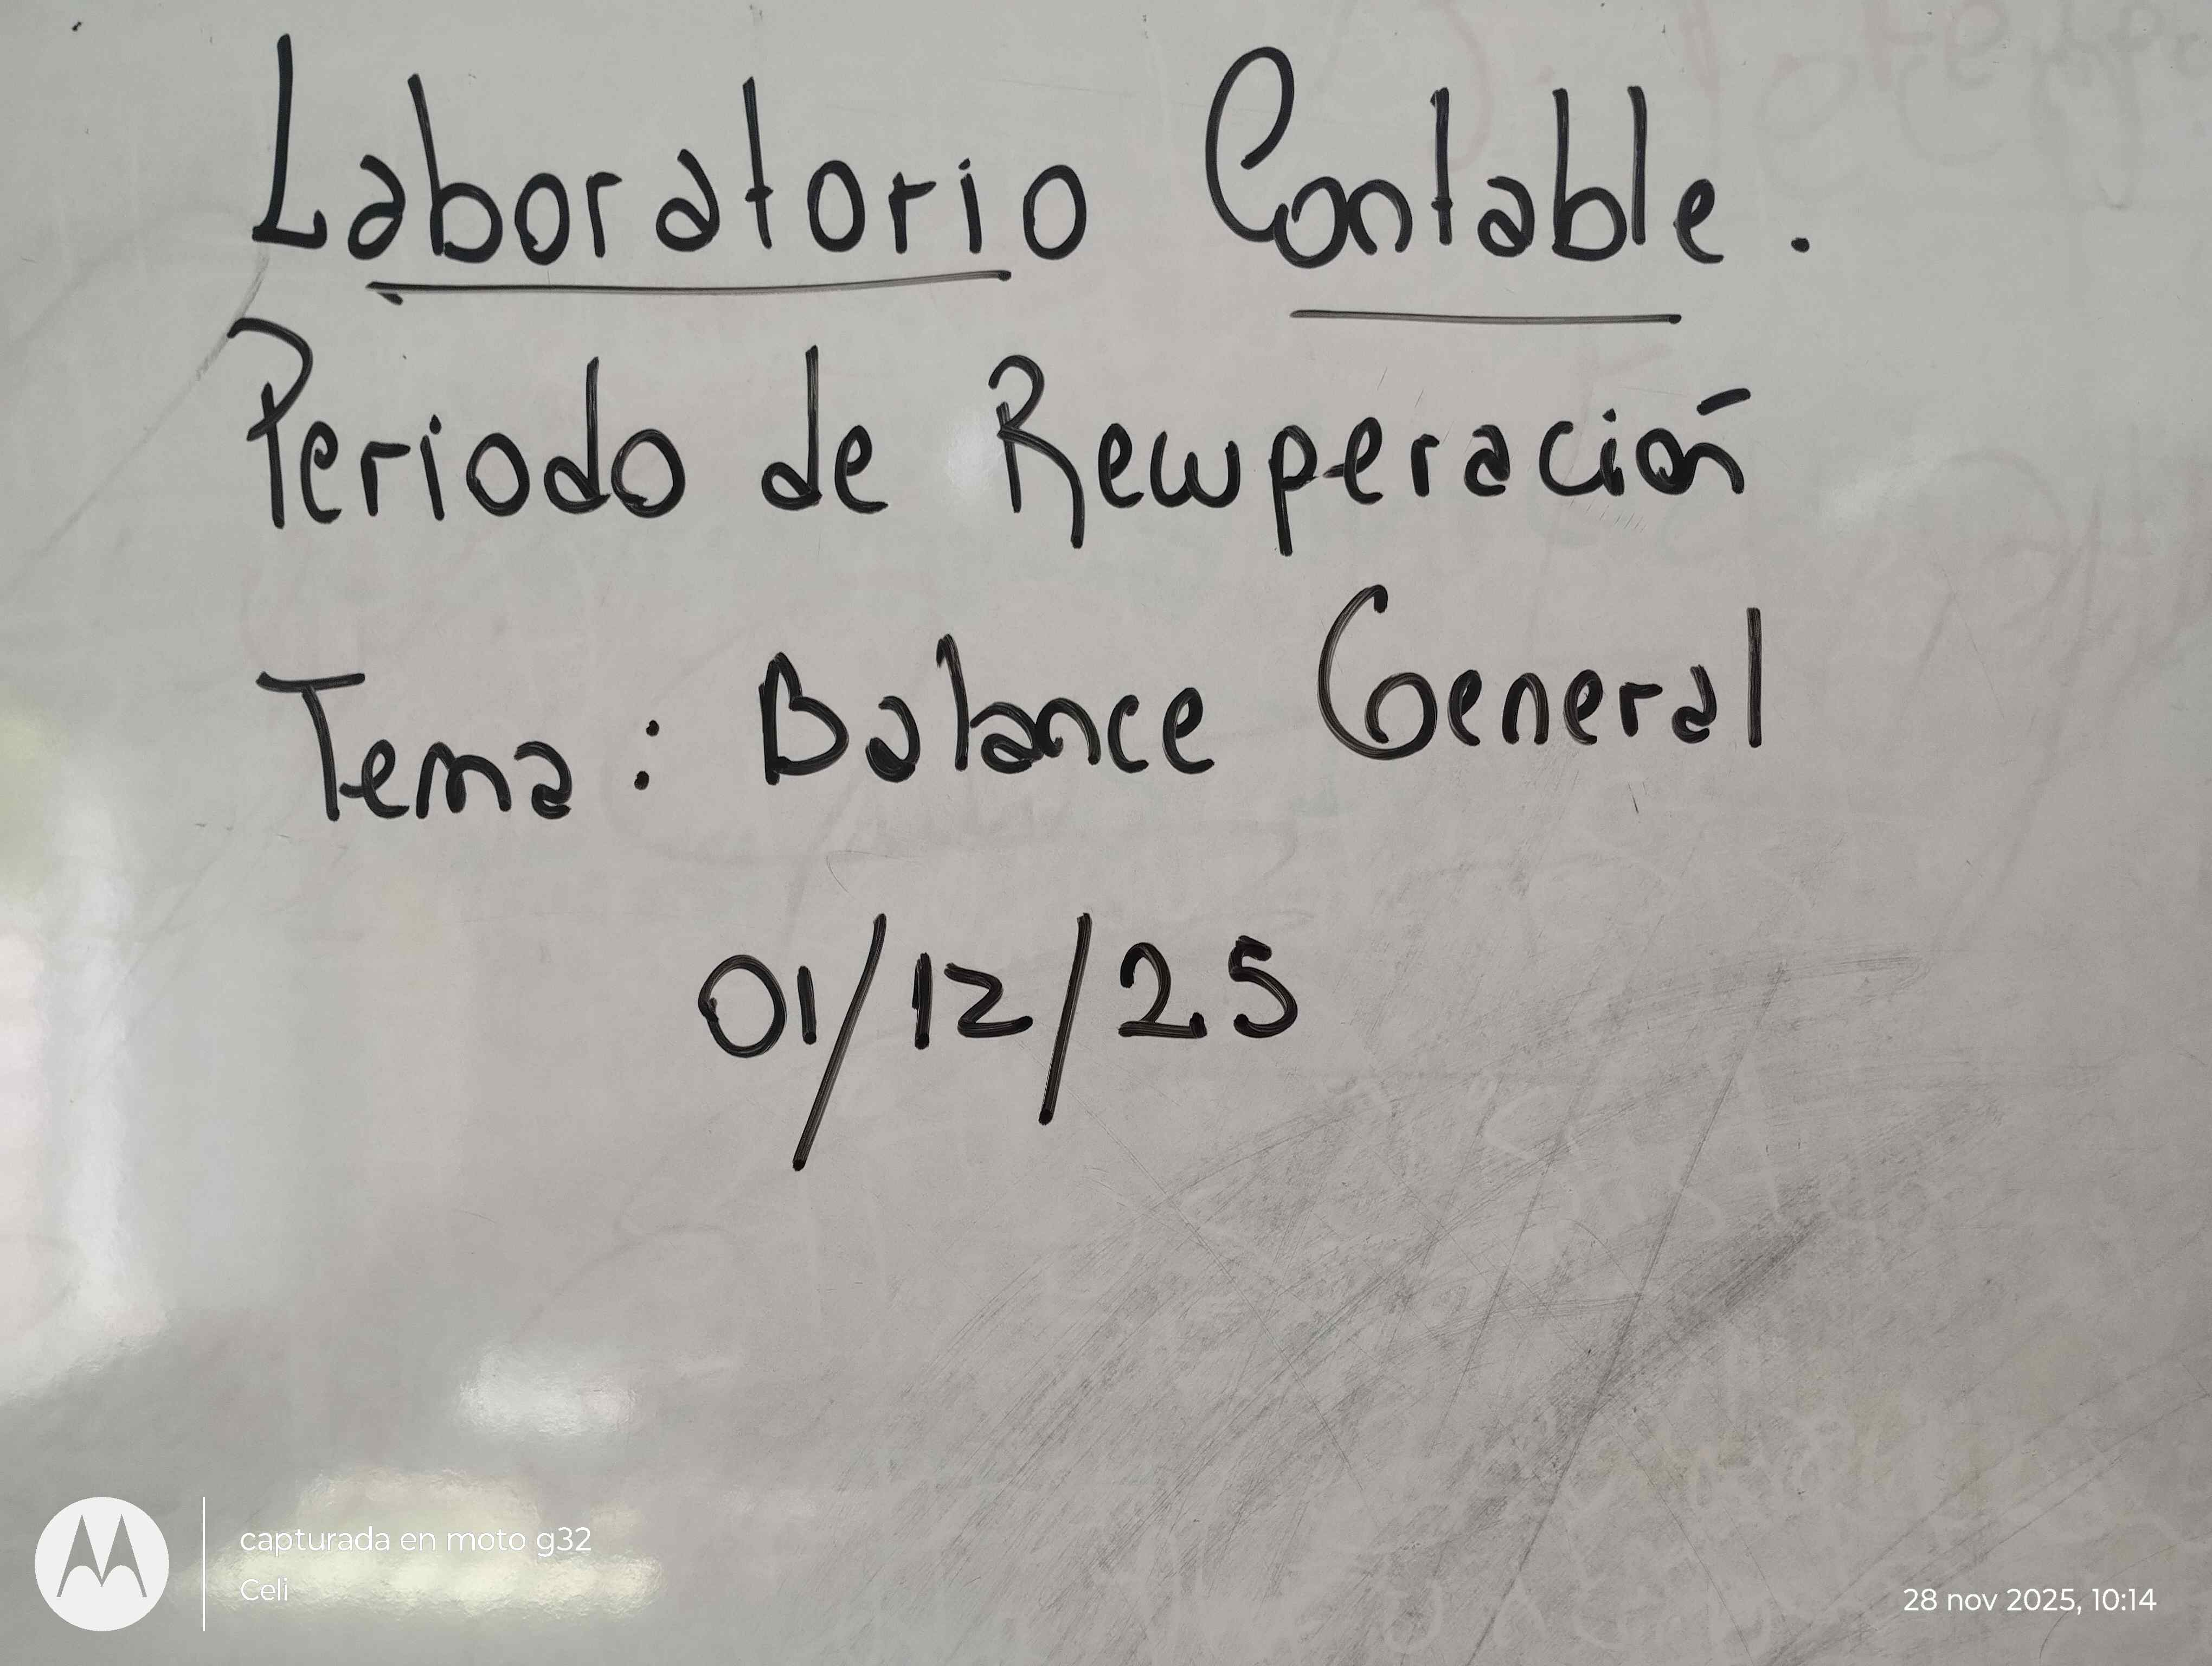 Laboratorio Contable.
Periodo de Recuperación
Tema: Balance General
01/12/25
capturada en moto g32
Celi
28 nov 2025, 10:14